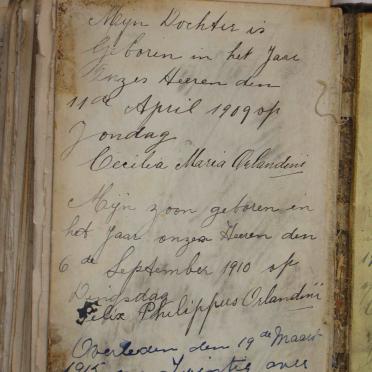 Mijn Dochter is
Geboren in het Jaar
Onzes Heeren den
11de April 1909 op
Zondag
Cecilia Maria Orlandini
Mijn zoon geboren in
het Jaar onzes Heeren den
6de September 1910 op
Dingsdag
Felix Philippus Orlandini
Overleden den 19de Maart
1915 over